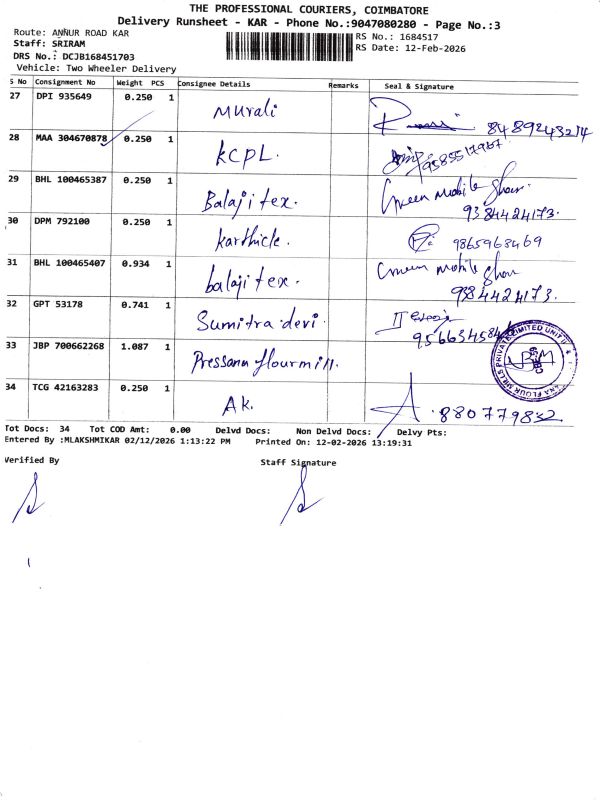 THE PROFESSIONAL COURIERS, COIMBATORE
Delivery Runsheet - KAR - Phone No.:9047080280 - Page No.:3
Route: ANNUR ROAD KAR
RS No.: 1684517
Staff: SRIRAM
RS Date: 12-Feb-2026
DRS No.: DCJB168451703
Vehicle: Two Wheeler Delivery
S No Consignment No Weight PCS Consignee Details Remarks Seal & Signature
27 DPI 935649 0.250 1 Murali 8489243214
28 MAA 304670878 0.250 1 KCPL. 9585517967
29 BHL 100465387 0.250 1 Balaji tex. Green Mobile Show. 9384424173.
30 DPM 792100 0.250 1 Karthick. 9865968469
31 BHL 100465407 0.934 1 balaji tex. Green Mobile Show 9384424173.
32 GPT 53178 0.741 1 Sumitra devi.
33 JBP 700662268 1.087 1 Pressana flourmill.
34 TCG 42163283 0.250 1 Ak. 880779832
Tot Docs: 34 Tot COD Amt: 0.00 Delvd Docs: Non Delvd Docs: Delvy Pts:
Entered By :MLAKSHMIKAR 02/12/2026 1:13:22 PM Printed On: 12-02-2026 13:19:31
Verified By Staff Signature